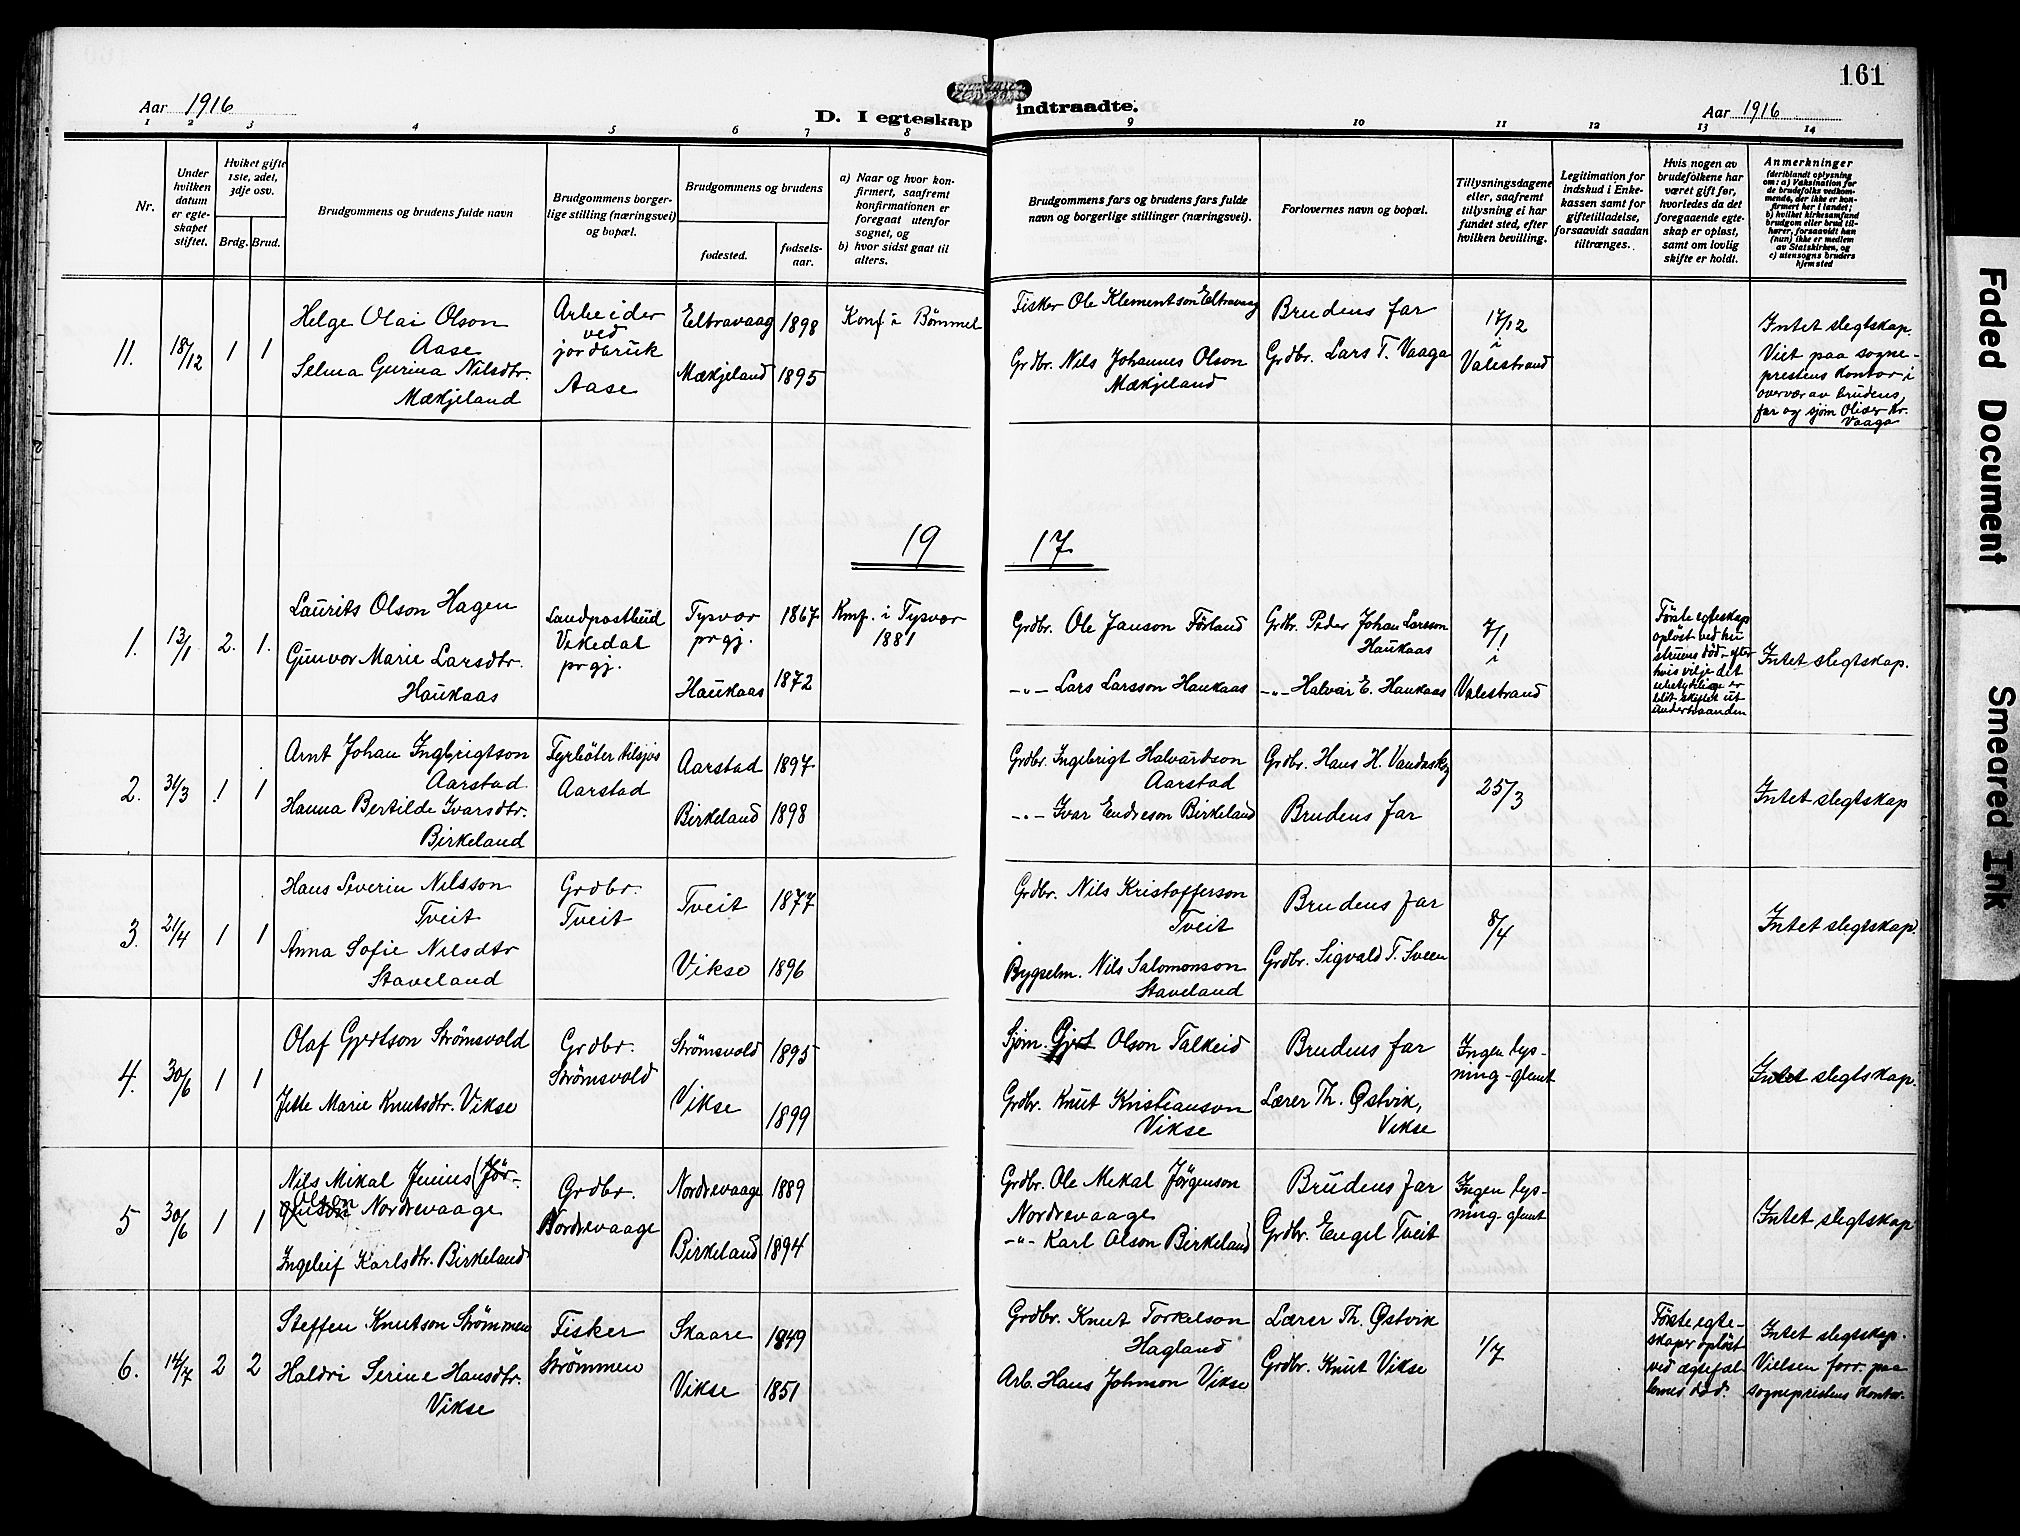 161
Aar 1916
D. I egteskap indtraadte.
Aar 1916
1 2 3 4 5 6 7 8 9 10 11 12 13 14
Nr.
Under
hvilken
datum
er egte-
skapet
stiftet.
Hviket gifte
1ste, 2det,
3dje osv.
Brdg. Brud.
Brudgommens og brudens fulde navn
Brudgommens borger-
lige stilling (næringsvei)
og bopæl.
Brudgommens og brudens
fødested.
fødsels-
aar.
a) Naar og hvor kon-
firmert, saafremt
konfirmationen er
foregaat utenfor
sognet, og
b) hvor sidst gaat til
alters.
Brudgommens fars og brudens fars fulde
navn og borgerlige stillinger (næringsvei).
Forlovernes navn og bopæl.
Tillysningsdagene
eller, saafremt
tillysning ei har
fundet sted, efter
hvilken bevilling.
Legitimation for
indskud i Enke-
kassen samt for
giftetilladelse,
forsaavidt saadan
tiltrænges.
Hvis nogen av
brudefolkene har
været gift før,
hvorledes da det
foregaaende egte-
skap er opløst,
samt om lovlig
skifte er holdt.
Anmerkninger
(deriblandt oplysning
om: a) Vaksination for
de brudefolks vedkom-
mende, der ikke er kon-
firmert her i landet;
b) hvilket kirkesamfund
brudgom eller brud til-
hører, forsaavidt han
(hun) ikke er medlem
av Statskirken, og
c) utensogns bruders
hjemsted
11. 18/12 1 1
Helge Olai Olson
Aase
Selma Gurina Nilsdtr.
Mækjeland
Arbeider
ved
jordbruk
Aase
Eltravaag 1898
Mækjeland 1895
Konf. i Bømmel
Fisker Ole Klementson Eltravaag
Grdbr. Nils Johannes Olson
Mækjeland
Brudens far
Grdbr. Lars T. Vaaga
17/12
i
Valestrand
Intet slegtskap.
Viet paa sogne-
prestens kontor i
overvær av brudens
far og sjøm Oliver Kr.
Vaaga
19
17
1. 13/1 2. 1.
Laurits Olson Hagen
Gunvor Marie Larsdtr.
Haukaas
Landpostbud
Vikedal
prgj.
Tysvær
prgj.
1867
Haukaas 1872
Knf. i Tysvær
1881
Grdbr. Ole Janson Førland
-"- Lars Larsson Haukaas
Grdbr. Peder Johan Larsson
Haukaas
-"- Halvar E. Haukaas
7/1
i
Valestrand
Første egteskap
opløst ved hu
struens død - efter
hvis vilje det
ubetydelige er
blit skiftet ut
under haanden
Intet slegtskap.
2. 31/3 1 1
Arnt Johan Ingbrigtson
Aarstad
Hanna Bertilde Ivarsdtr.
Birkeland
Fyrbøter tilsjøs
Aarstad
Aarstad 1897
Birkeland 1898
Grdbr. Ingebrigt Halvardson
Aarstad
-"- Ivar Endreson Birkeland
Grdbr. Hans H. Vandaskog
Brudens far
25/3
Intet slegtskap
3. 21/4 1 1
Hans Severin Nilsson
Tveit
Anna Sofie Nilsdtr
Staveland
Grdbr.
Tveit
Tveit 1877
Vikse 1896
Grdbr. Nils Kristofferson
Tveit
Bygselm. Nils Salomonson
Staveland
Brudens far
Grdbr. Sigvald T. Sveen
8/4
Intet slegtskap.
4. 30/6 1 1
Olaf Gjertson Strømsvold
Jette Marie Knutsdtr. Vikse
Grdbr.
Strømsvold
Strømsvold 1895
Vikse 1899
Sjøm. Gjert Olson Talkeid
Grdbr. Knut Kristianson
Vikse
Brudens far
Lærer Th. Østvik,
Vikse
Ingen lys-
ning - glemt
Intet slegtskap.
5 30/6 1 1
Nils Mikal Junius (Jør-
genson Olson Nordrevaage
Ingeleif Karlsdtr. Birkeland
Grdbr.
Nordrevaage
Nordrevaage 1889
Birkeland 1894
Grdbr. Ole Mekal Jørgenson
Nordrevaage
-"- Karl Olson Birkeland
Brudens far
Grdbr. Engel Tveit
Ingen lys-
ning - glemt
Intet slegtskap
6. 14/7 2 2
Steffen Knutson Strømmen
Haldri Serine Hansdtr.
Vikse
Fisker
Strømmen
Skaare 1849
Vikse 1851
Grdbr. Knut Torkelson
Hagland
Arb. Hans Johnson Vikse
Lærer Th. Østvik
Grdbr. Knut Vikse
1/7
Første egte-
skaper opløst
ved ægtefæl-
lernes død.
Intet slegtskap.
Vielsen forr. paa
sogneprestens kontor.
Faded Document
Smeared Ink